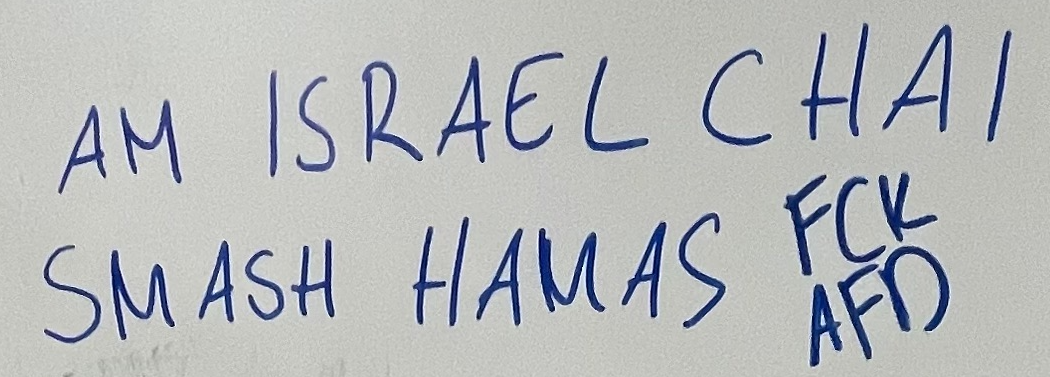 AM ISRAEL CHAI
SMASH HAMAS
FCK
AFD